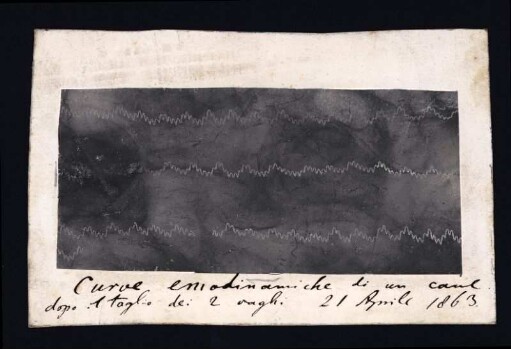 Curve emodinamiche di un cane
dopo il taglio dei 2 vaghi. 21 Aprile 1863